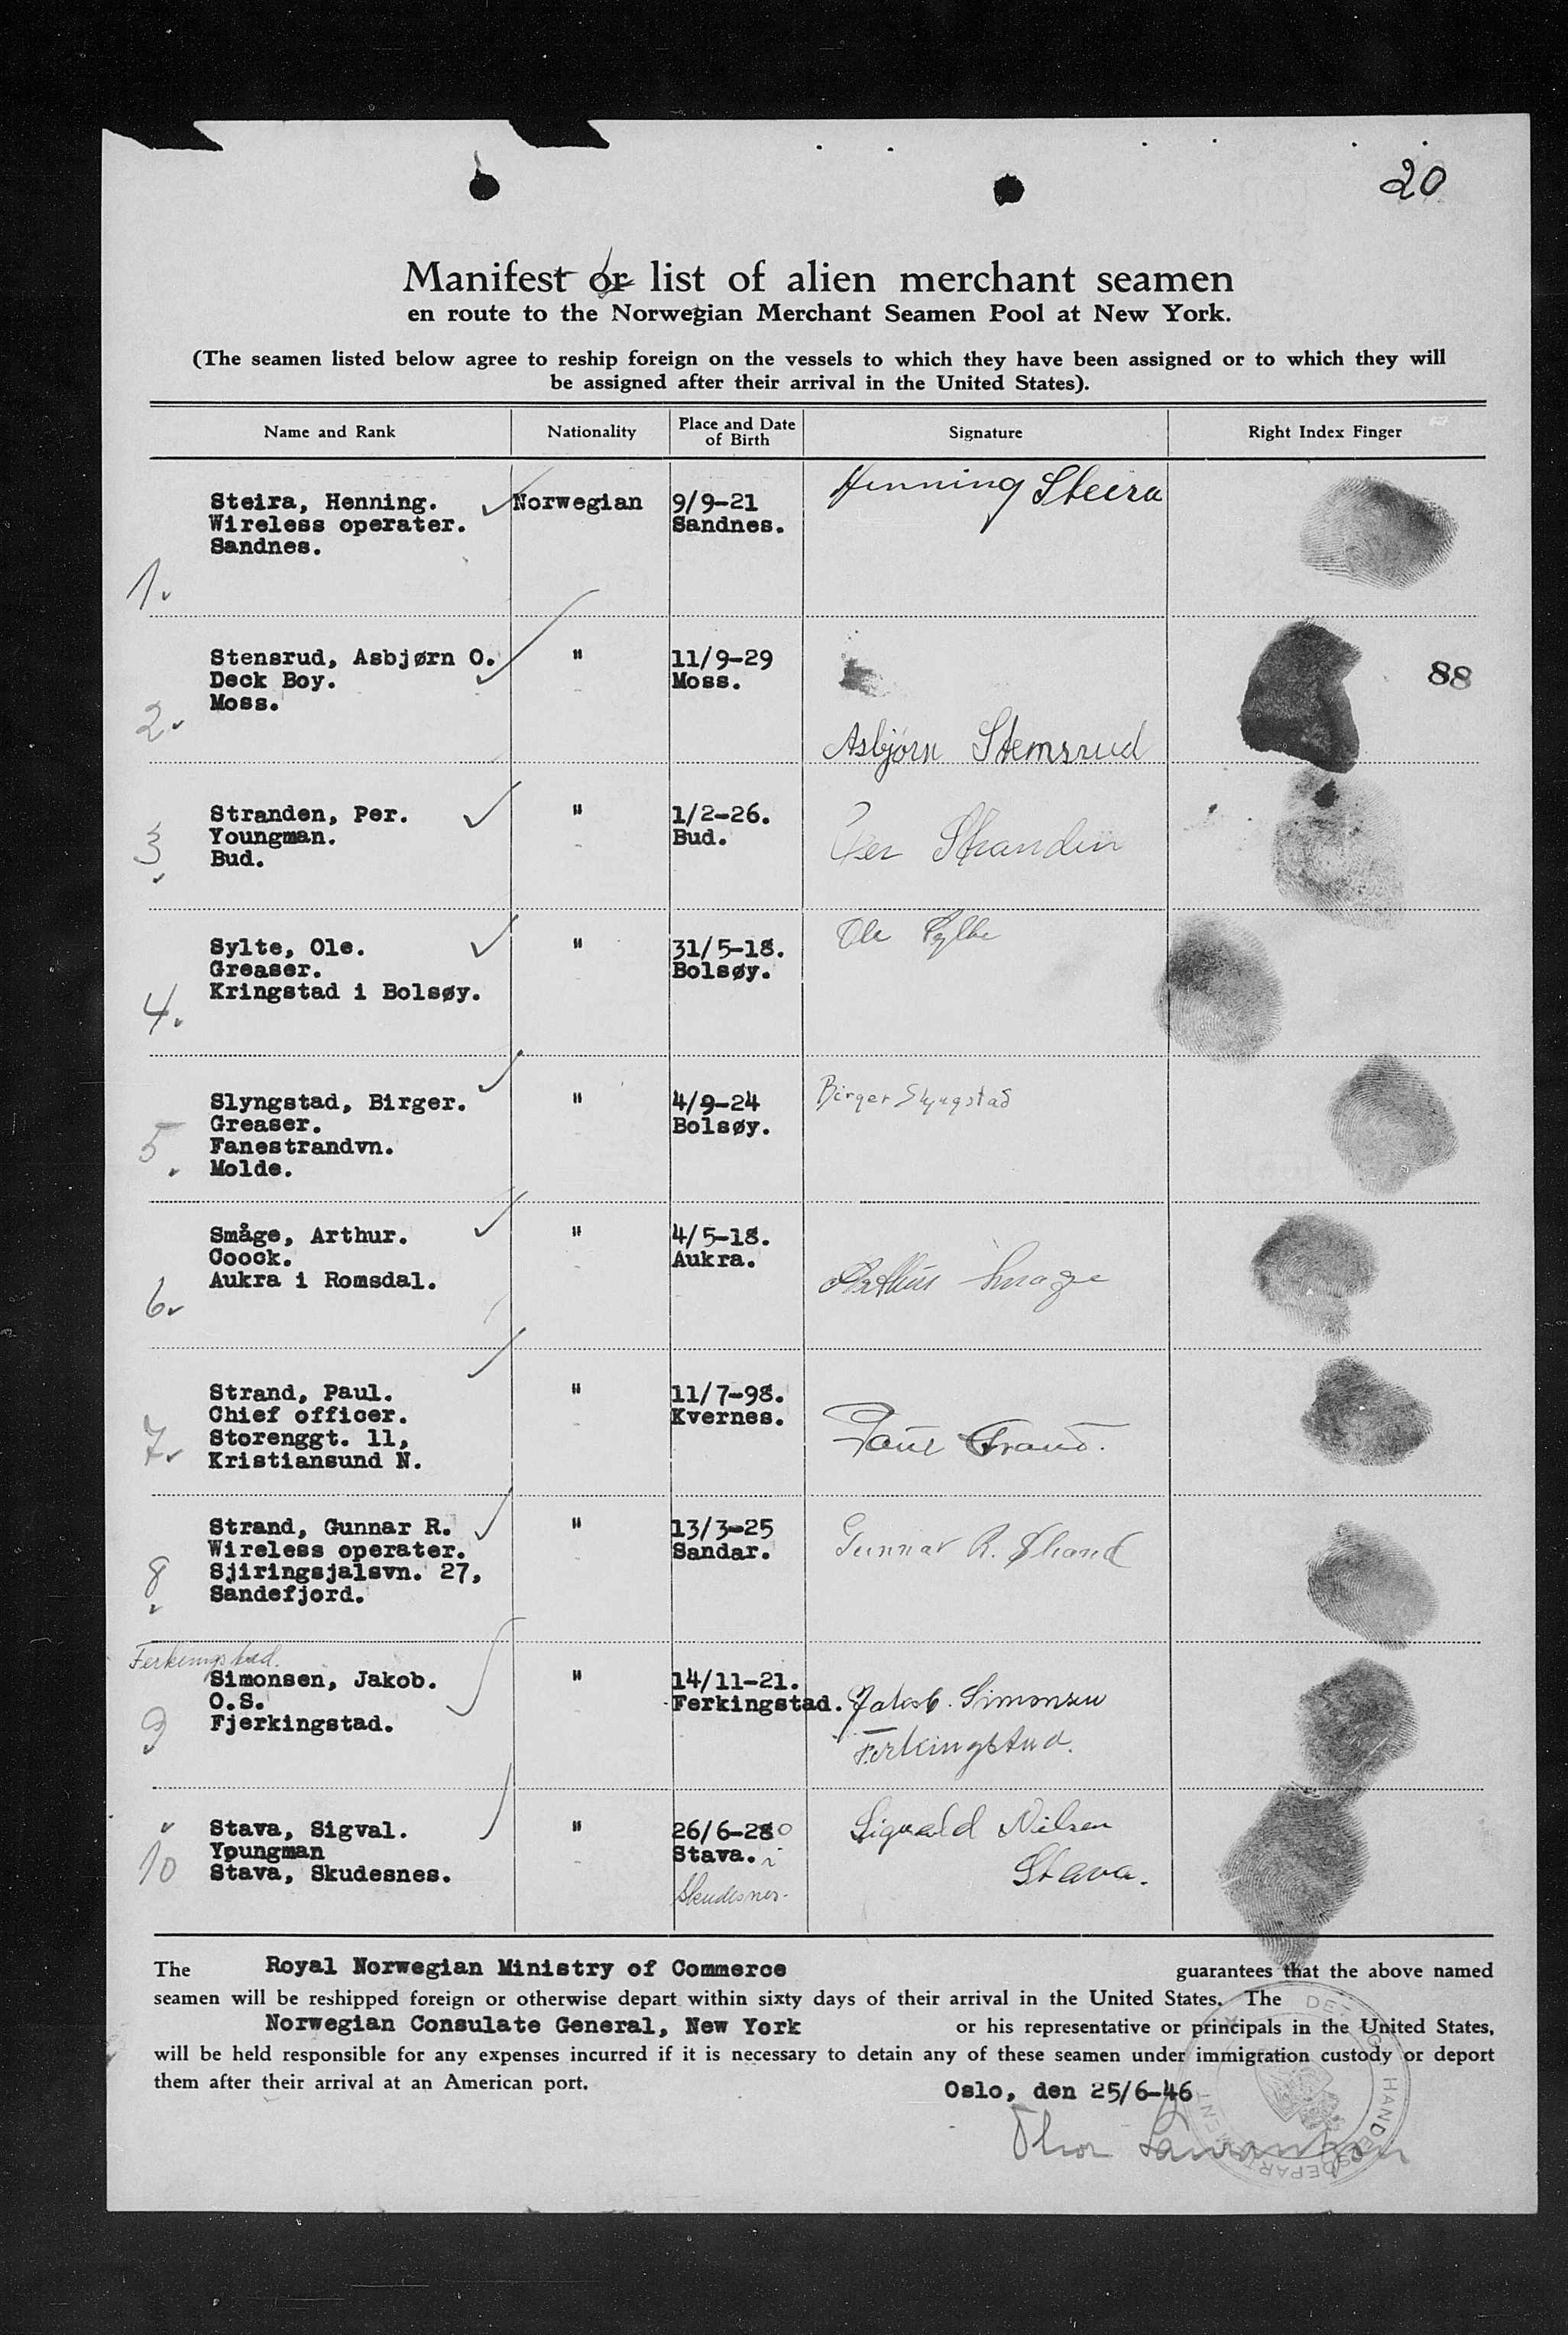 20
Manifest or list of alien merchant seamen
en route to the Norwegian Merchant Seamen Pool at New York.
(The seamen listed below agree to reship foreign on the vessels to which they have been assigned or to which they will
be assigned after their arrival in the United States).
Name and Rank Nationality Place and Date of Birth Signature Right Index Finger
Steira, Henning. Norwegian 9/9-21 Henning Steira
Wireless operater. Sandnes.
Sandnes.
1.
Stensrud, Asbjørn O. " 11/9-29 88
Deck Boy. Moss.
Moss.
2. Asbjørn Stemsrud
Stranden, Per. " 1/2-26.
Youngman. Bud. Per Stranden
3 Bud.
Sylte, Ole. " 31/5-18. Ole Sylte
Greaser. Bolsøy.
Kringstad i Bolsøy.
4.
Slyngstad, Birger. " 4/9-24 Birger Slyngstad
Greaser. Bolsøy.
5. Fanestrandvn.
Molde.
Småge, Arthur. " 4/5-18.
Coock. Aukra.
Aukra i Romsdal. Arthur Smage
6.
Strand, Paul. " 11/7-98.
Chief officer. Kvernes.
Storenggt. 11, Paul Strand.
7. Kristiansund N.
Strand, Gunnar R. " 13/3-25
Wireless operater. Sandar. Gunnar R. Strand
Sjiringsjalsvn. 27,
8 Sandefjord.
Ferkingstad.
Simonsen, Jakob. " 14/11-21.
O.S. Ferkingstad. Jakob. Simonsen
9 Fjerkingstad. Ferkingstad.
Stava, Sigval. " 26/6-280 Sigvald Nilsen
Youngman Stava. i
10 Stava, Skudesnes. Skudesnes. Stava.
The Royal Norwegian Ministry of Commerce guarantees that the above named
seamen will be reshipped foreign or otherwise depart within sixty days of their arrival in the United States. The
Norwegian Consulate General, New York or his representative or principals in the United States,
will be held responsible for any expenses incurred if it is necessary to detain any of these seamen under immigration custody or deport
them after their arrival at an American port.
Oslo, den 25/6-46
Thor
HANDELSDEPARTEMENT